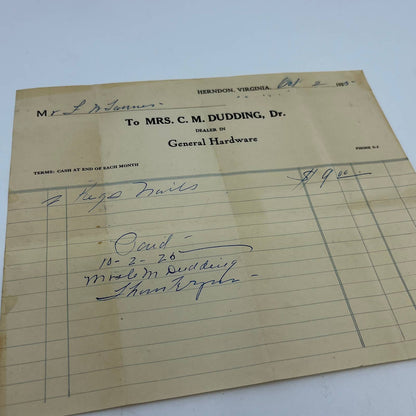 HERNDON, VIRGINIA, Oct 2 19
Mr
To MRS. C. M. DUDDING, Dr.
DEALER IN
General Hardware
TERMS: CASH AT END OF EACH MONTH
PHONE 8-J
2 Kegs Nails $9.00
Paid
10-2-25
Mrs C M Dudding